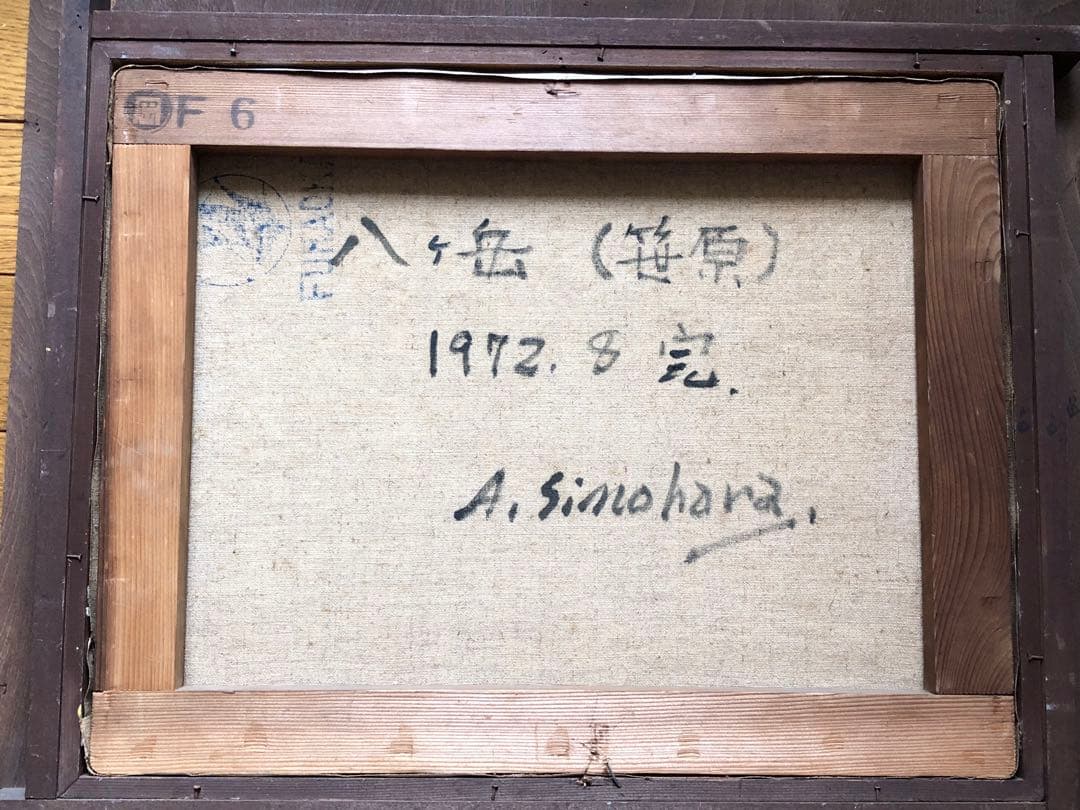 F 6
八ヶ岳 (笹原)
1972. 8 完.
A. Simohara.